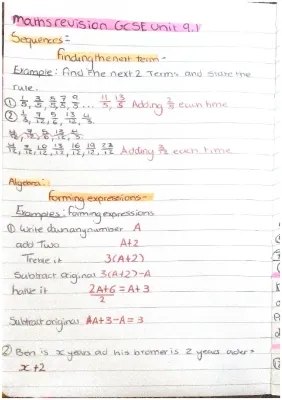 maths revision GCSE Unit 9.1
Sequences:-
Finding the next term -
Example: Find the next 2 Terms and state the
rule.
① 1/5, 3/5, 5/5, 7/5, 9/5 ... 11/5, 13/5 Adding 2/5 each time
② 1/3, 7/12, 5/6, 13/12, 4/3
4/12, 7/12, 10/12, 13/12, 16/12, 19/12, 22/12 Adding 3/12 each time.
Algebra:
Forming expressions -
Examples: Forming expressions
① Write down any number A
add Two A+2
Treble it 3(A+2)
Subtract original 3(A+2)-A
halve it 2A+6/2 = A+3
Subtract original A+3-A = 3
② Ben is x years old his brother is 2 years older
x+2